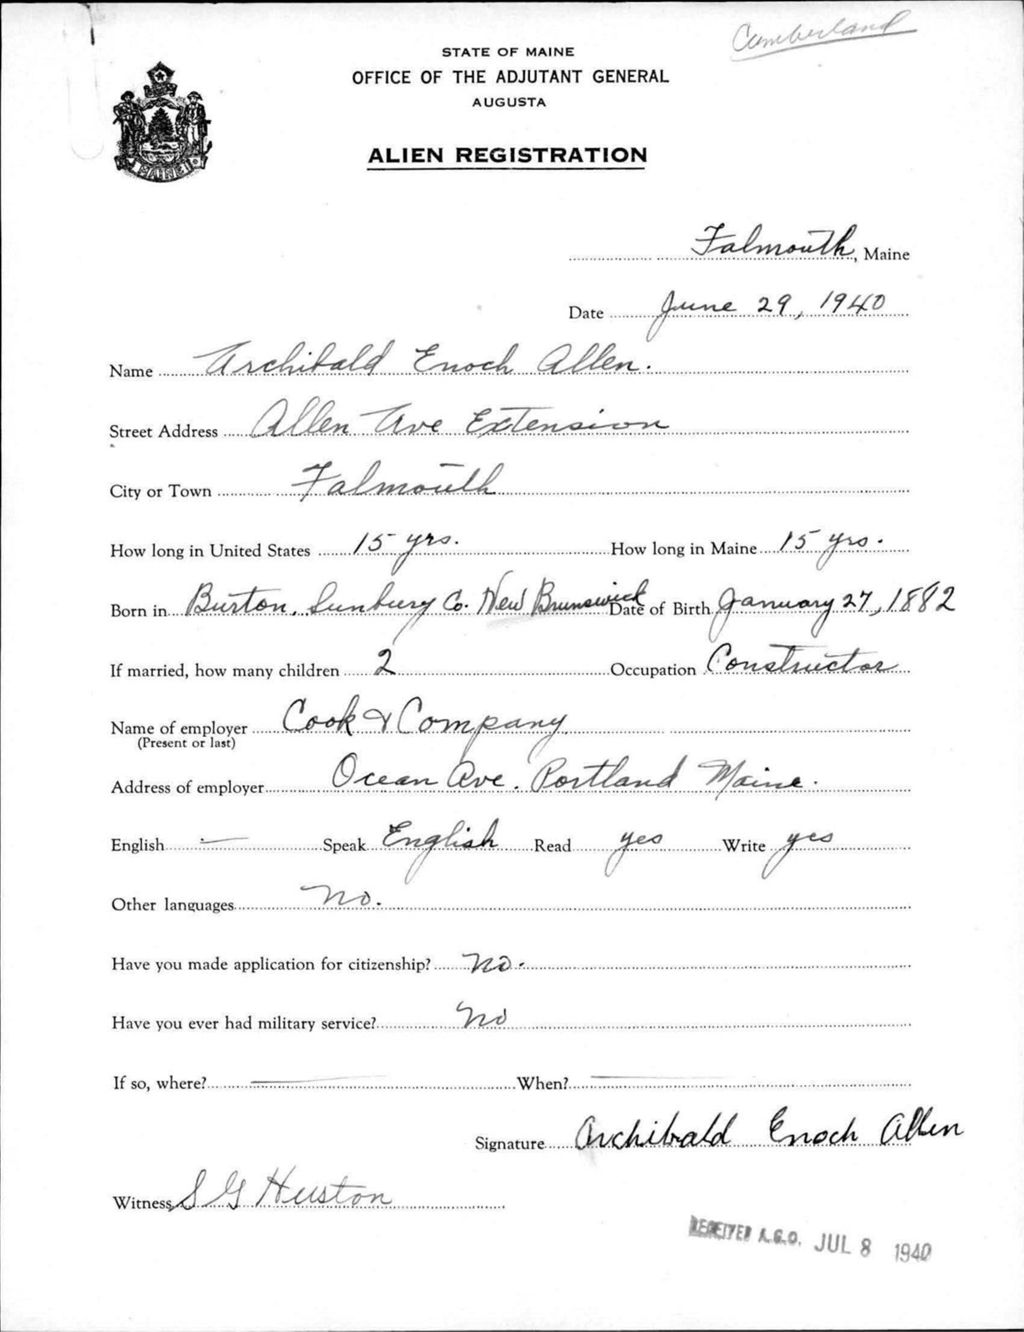 Cumberland
STATE OF MAINE
OFFICE OF THE ADJUTANT GENERAL
AUGUSTA
ALIEN REGISTRATION
MAINE
Falmouth, Maine
Date June 29, 1940
Name Archibald Enoch Allen.
Street Address Allen Ave Extension
City or Town Falmouth
How long in United States 15 yrs. How long in Maine 15 yrs.
Born in Burton, Sunbury Co. New Brunswick Date of Birth January 27, 1882
If married, how many children 2 Occupation Constructor
Name of employer Cook & Company
(Present or last)
Address of employer Ocean Ave. Portland Maine.
English — Speak English Read yes Write yes
Other languages No.
Have you made application for citizenship? No.
Have you ever had military service? No
If so, where? — When? —
Signature Archibald Enoch Allen
Witness S G Huston
RECEIVED A.G.O. JUL 8 1940